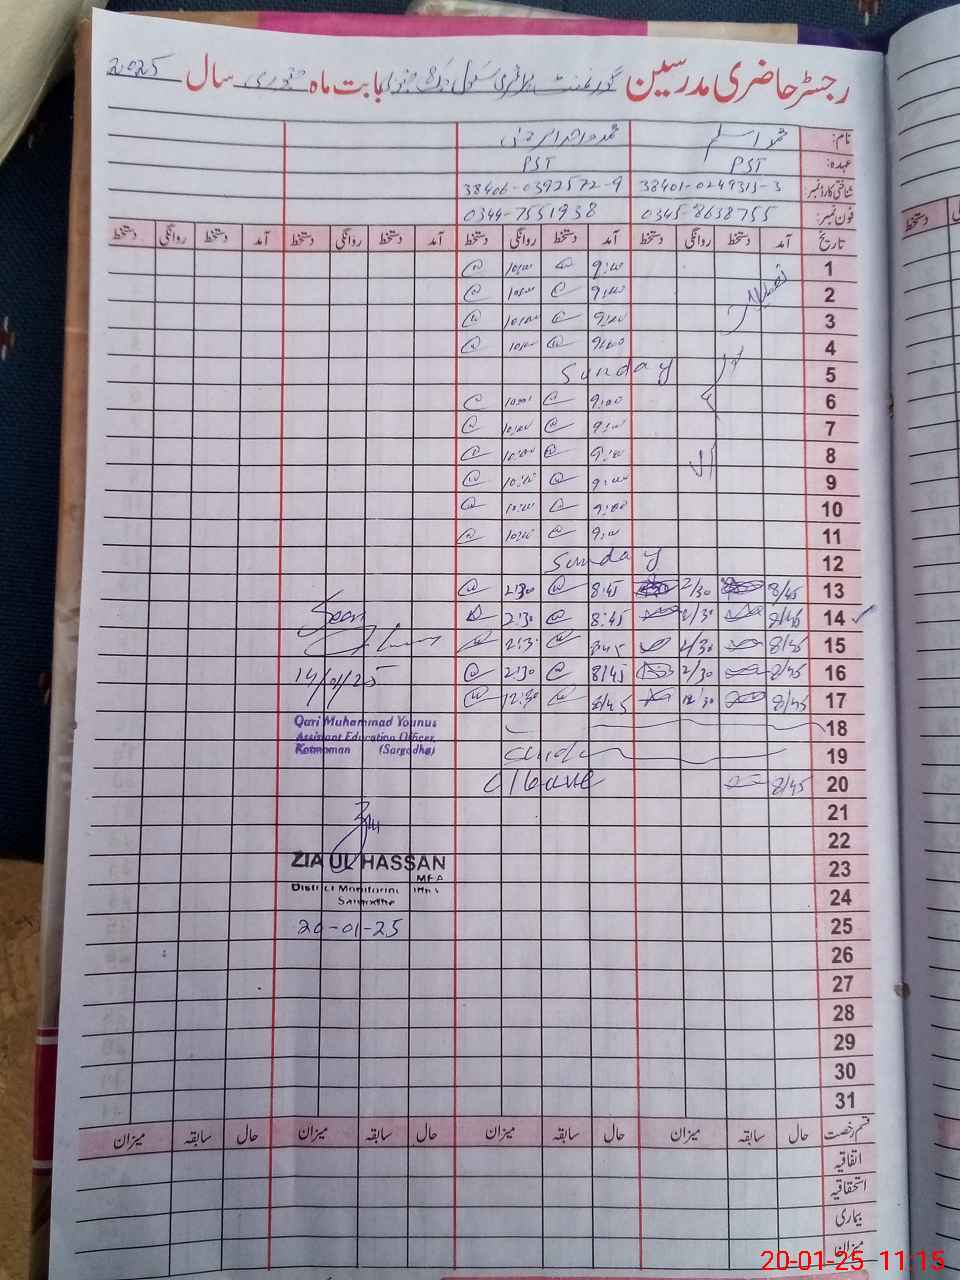 رجسٹر حاضری مدرسین گورنمنٹ پرائمری سکول بابت ماہ جنوری سال 2025
نام: محمد اسلم
عہدہ: PST PST
شناختی کارڈ نمبر: 38401-0249315-3 38406-0392572-9
فون نمبر: 0345-8638755 0344-7551938
تاریخ آمد دستخط روانگی دستخط آمد دستخط روانگی دستخط آمد دستخط روانگی دستخط آمد دستخط روانگی دستخط
1 9:00 10:00
2 9:00 10:00
3 9:00 10:00
4 9:00 10:00
5 Sunday
6 9:00 10:00
7 9:00 10:00
8 9:00 10:00
9 9:00 10:00
10 9:00 10:00
11 9:00 10:00
12 Sunday
13 8/45 2/30 8:45 2:30
14 8/45 2/30 8:45 2:30
15 8/45 2/30 8:45 2:30
16 8/45 2/30 8/45 2:30
17 8/45 12/30 8/45 12:30
18
19
20 8/45
21
22
23
24
25
26
27
28
29
30
31
Seen
14/01/25
Qari Muhammad Younus
Assistant Education Officer
Kotmoman (Sargodha)
ZIA UL HASSAN
MEA
District Monitoring
Sargodha
20-01-25
قسم رخصت حال سابقہ میزان حال سابقہ میزان حال سابقہ میزان حال سابقہ میزان
اتفاقیہ
استحقاقیہ
بیماری
میزان
دستخط
20-01-25 11:15